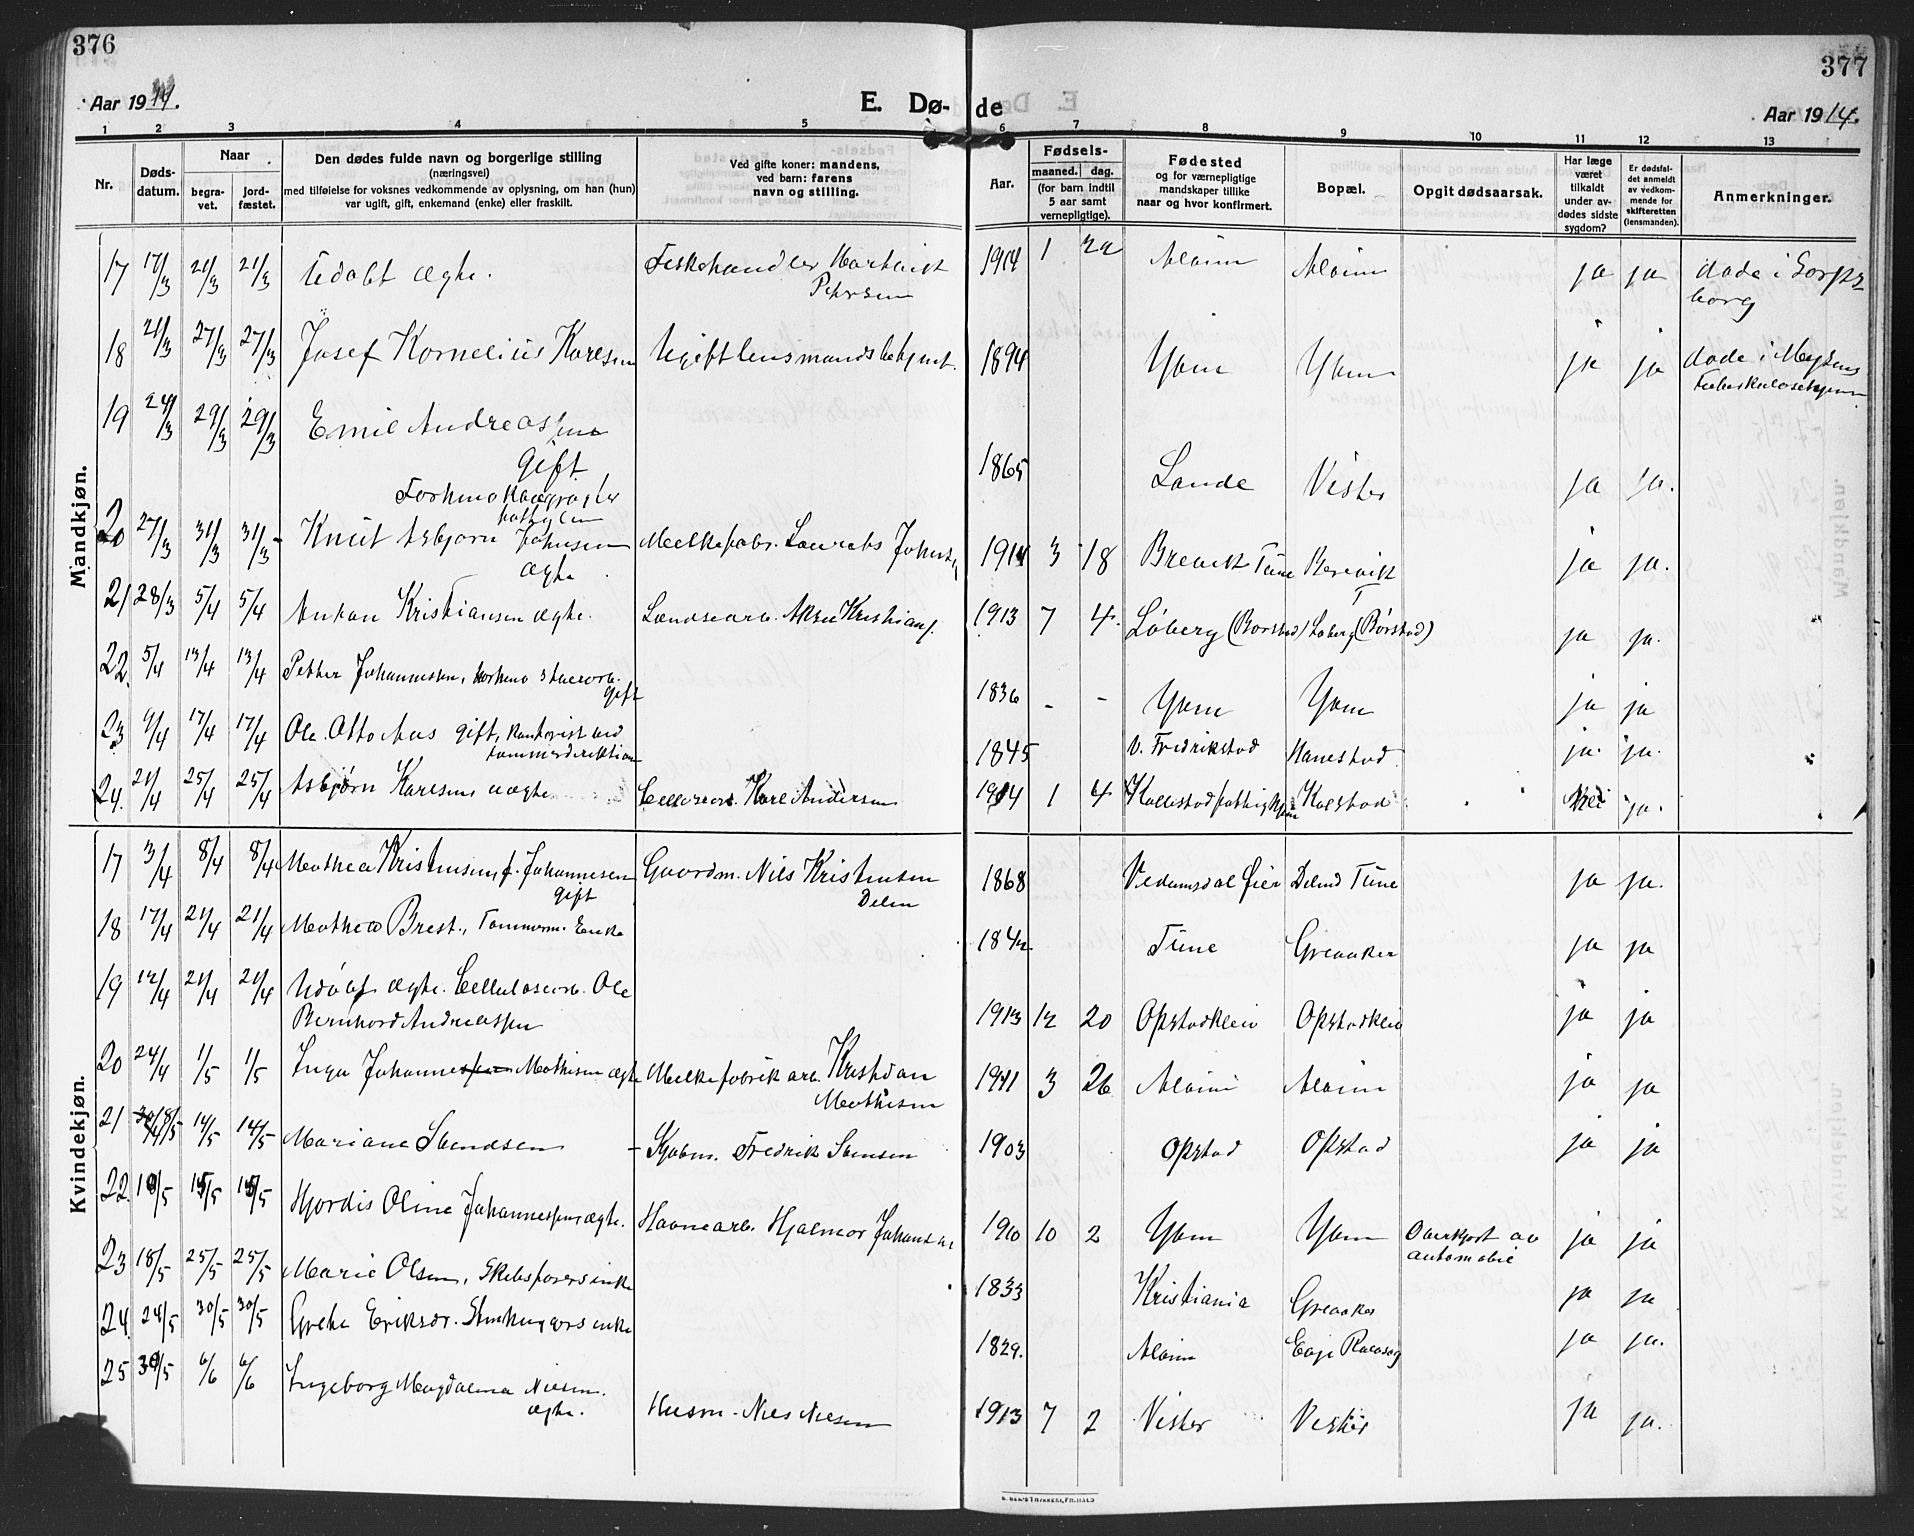 376
377
Aar 1914.
E. Dø-
de
Aar 1914.
1 2 3 4 5 6 7 8 9 10 11 12 13
Nr.
Døds-
datum.
Naar
begra-
vet.
jord-
fæstet.
Den dødes fulde navn og borgerlige stilling
(næringsvei)
med tilføielse for voksnes vedkommende av oplysning, om han (hun)
var ugift, gift, enkemand (enke) eller fraskilt.
Ved gifte koner: mandens,
ved barn: farens
navn og stilling.
Aar.
Fødsels-
maaned. dag.
(for barn indtil
5 aar samt
vernepligtige).
Fødested
og for værnepligtige
mandskaper tillike
naar og hvor konfirmert.
Bopæl.
Opgit dødsaarsak.
Har læge
været
tilkaldt
under av-
dødes sidste
sygdom?
Er dødsfal-
det anmeldt
av vedkom-
mende for
skifteretten
(lensmanden).
Anmerkninger.
Mandkjøn.
17 17/3 21/3 21/3 Udøbt ægte. Fiskehandler Hartvig 1914 1 22 Alvim Alvim ja ja døde i Sarps-
Petersen borg
18 21/3 27/3 27/3 Josef Kornelius Karlsen Ugift lensmandsbetjent. 1894 Yven Yven ja ja døde i
19 24/3 29/3 29/3 Emil Andreassen
gift 1865 Lande Vister ja ja.
20 27/3 31/3 31/3 Knut Asbjørn Johnsen Melkefabr. Laurits Johns. 1914 3 18 Brevik Tune Brevik ja ja.
ægte
21 28/3 5/4 5/4 Anton Kristiansen ægte. Landsearb. Kristians. 1913 7 4. Løberg (Borstad) Løberg (Børstad) ja ja.
22. 5/4 13/4 13/4 Petter Johannessen,
gift 1836 - - Yven Yven ja ja
23 9/4 17/4 17/4 Ole Otto Aas gift, kontorist ved
tømmerdirektion 1845 v. Fredrikstad Hanestad ja. ja.
24. 21/4 25/4 25/4 Asbjørn Karlsen, uægte Cellulosearb. Karl Andersen 1914 1 4 Kallestad fattighjem Kalstad Nei ja.
Kvindekjøn.
17 3/4 8/4 8/4 Mathea Kristensen, f. Johannesen Gaardm. Nils Kristensen 1868 Øier Tune ja ja.
gift
18 17/4 21/4 21/4 Mathea Brest., Tømmerm. Enke 184 Tune Greaaker ja ja
19 12/4 21/4 21/4 Udøbt ægte. Cellulosearb. Ole
Bernhard Andreassen 1913 12 20 Opstadklev Opstadklev ja ja
20 24/4 1/5 1/5 Inga Johanne Mathisen ægte Melkefabrikarb. Kristian 1911 3 26 Alvim Alvim ja ja
Mathisen
21 14/5 14/5 Mariane Svendsen - Kjøbm. Fredrik Svensen 1903 Opstad Opstad ja ja
22. 10/5 15/5 15/5 Hjordis Oline Johannessen ægte. Havnearb. Hjalmar Johans. 1910 10 2 Yven Yven Overkjørt av ja ja
automobil
23 18/5 25/5 25/5 Marie Olsen, Skibsførers enke 1833 Kristiania Greaaker ja ja
24. 24/5 30/5 30/5 Grete Eriksdr. enke 1829. Alvim ja ja.
25 30/5 6/6 6/6 Ingeborg Magdalena Nilsen.
ægte. Husm. Nils Nilsen 1913 7 2 Vister Vister ja ja.